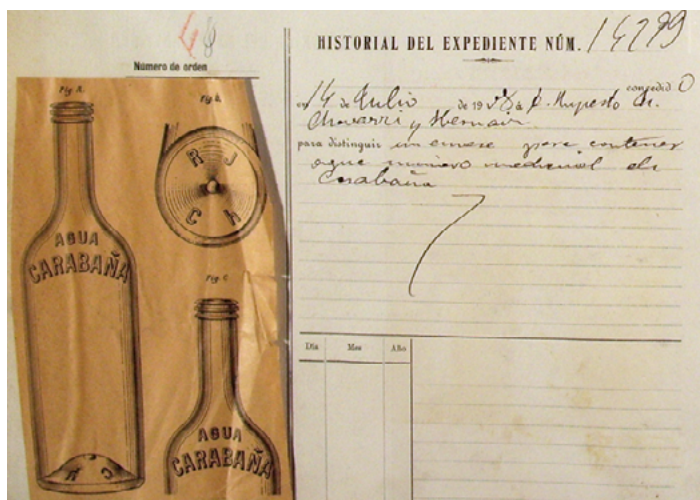 48
Número de orden
Fig A.
AGUA
CARABAÑA
Fig B.
R J
C H
Fig C.
AGUA
CARABAÑA
HISTORIAL DEL EXPEDIENTE NÚM. 14299
concedido
en 14 de Julio de 19 á D. Ruperto J.
Chavarri y
para distinguir un envase para contener
agua minero medicinal de
Carabaña
Día Mes Año